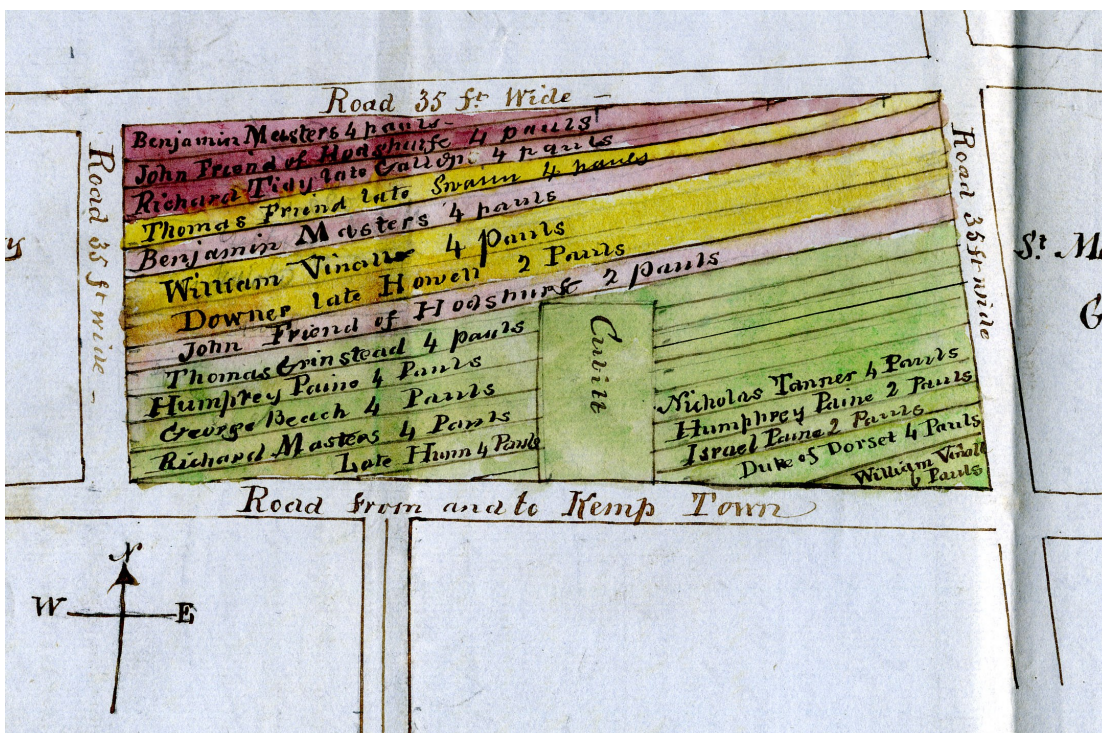 Road 35 ft Wide -
Benjamin Masters 4 pauls
John Friend of Hodshurse 4 pauls
Richard Tidy late Gallop 4 pauls
Thomas Friend late Swann 4 pauls
Benjamin Masters 4 pauls
William Vinall 4 Pauls
Downer late Howell 2 Pauls
John Friend of Hodshurse 2 pauls
Thomas Grinstead 4 pauls
Humphrey Paine 4 Pauls
George Beach 4 Pauls
Richard Masters 4 Pauls
Late Hunn 4 Pauls
Cubitt
Nicholas Tanner 4 Pauls
Humphrey Paine 2 Pauls
Israel Paine 2 Pauls
Duke of Dorset 4 Pauls
William Vinall
6 Pauls
Road 35 ft wide -
Road 35 ft wide
St. M
G
Road from and to Kemp Town
N
W E